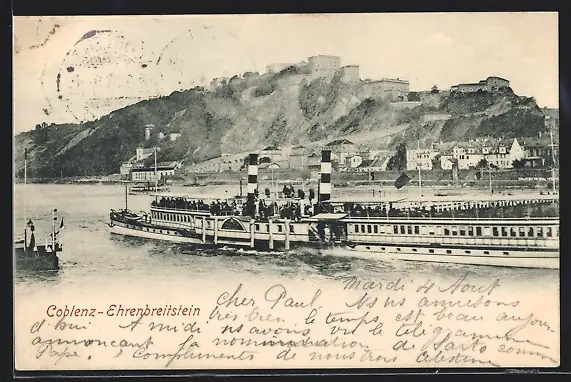 Coblenz-Ehrenbreitstein
Mardi 4 Août
Cher Paul, Ns ns amusons
très bien le temps est beau aujour
d'hui A midi ns avons vu le télégramme
annonçant la nomination de Sarto comme
Pape. Compliments de nous trois Célestine